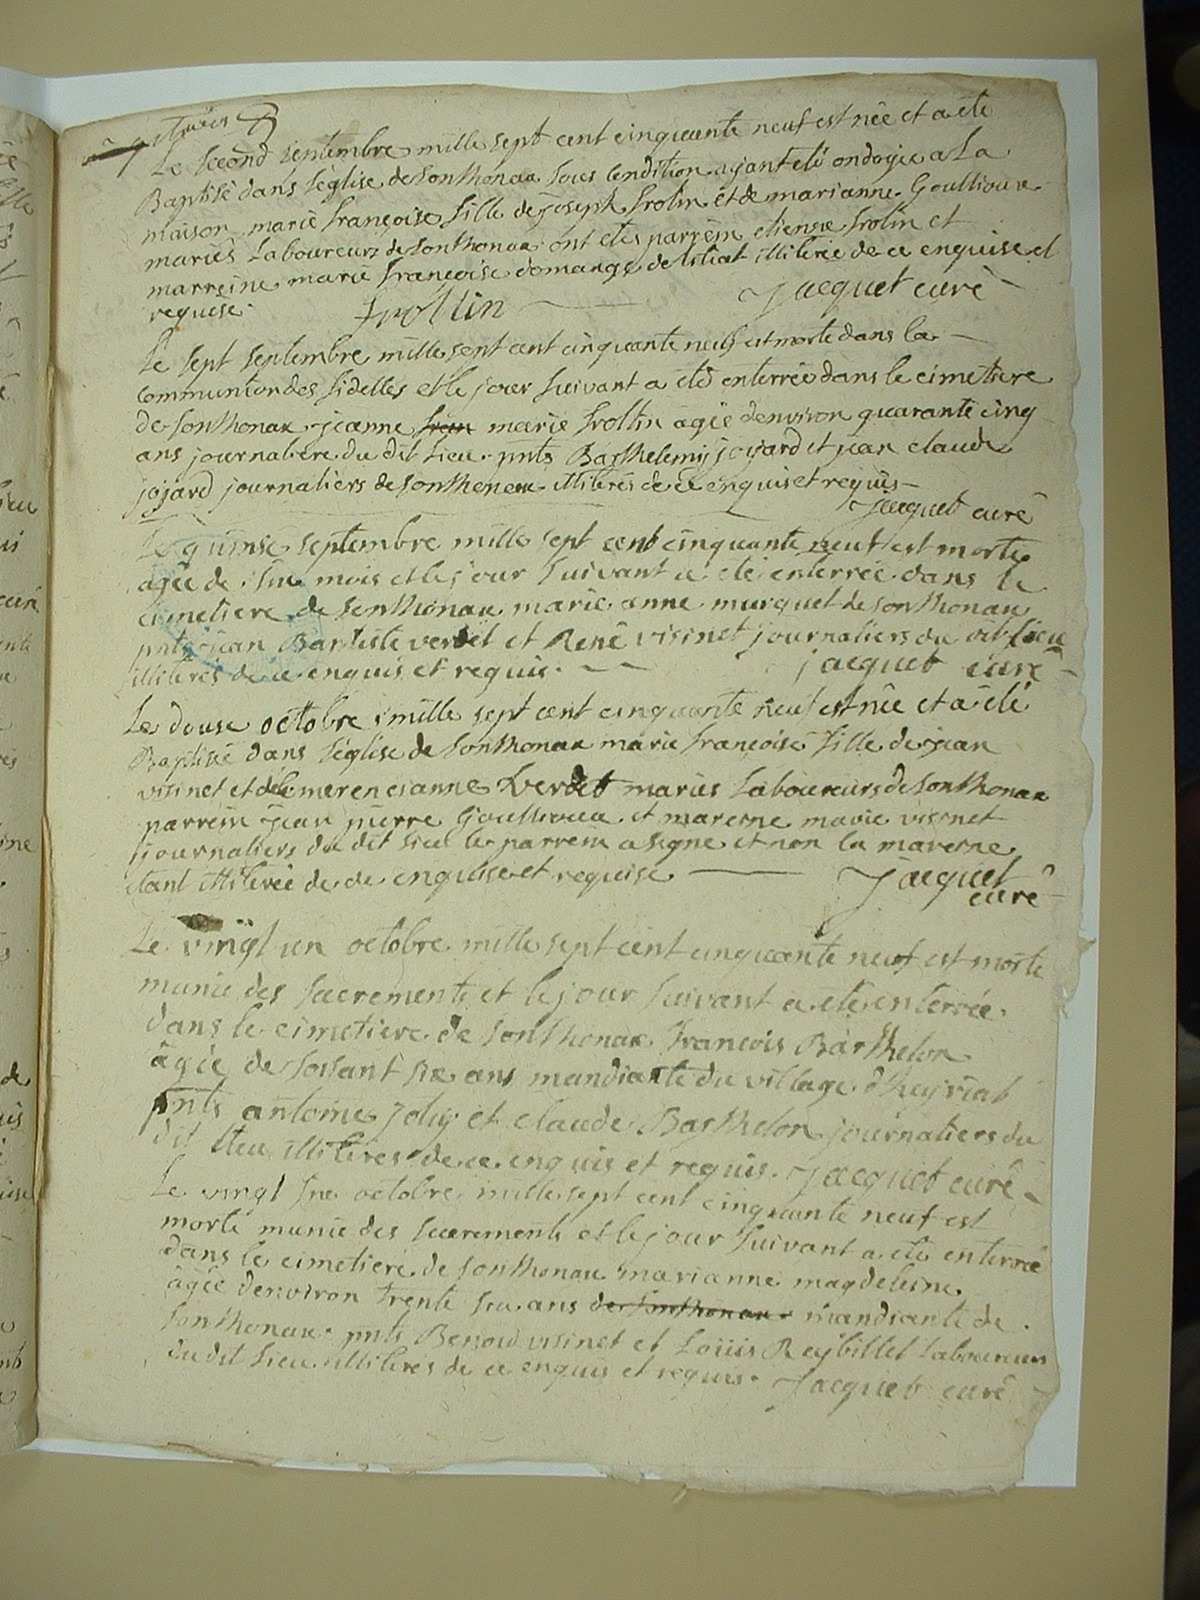 Le second septembre mille sept cent cinquante neuf est née et a été
Baptisé dans l'église de Sonthonax sous condition ayant été ondoyée a La
maison marie françoise fille de joseph frolin et de marianne Goullioux
mariés Laboureurs de Sonthonax ont étés parrein etienne frolin et
marreine marie françoise domange de illiterée de ce enquise et
requise. frollin Jacquet curé
Le sept septembre mille sept cent cinquante neuf est morte dans la
communion des fidelles et le jour suivant a été enterrée dans le cimetiere
de Sonthonax jeanne marie frollin agée denviron quarante cinq
ans journaliere du dit Lieu. pnts Barthelemy joyard et jean claude
joyard journaliers de Sonthonax illiterés de ce enquis et requis
Jacquet curé
Le quinse septembre mille sept cent cinquante neuf est morte
agée de six mois et le jour suivant a été enterrée dans le
cimetiere de Sonthonax marie anne murquet de Sonthonax
pnts jean Baptiste verdet et René visinet journaliers du dit Lieu
illiterés de ce enquis et requis. jacquet curé
Le douse octobre mille sept cent cinquante neuf est née et a été
Baptisé dans l'église de Sonthonax marie françoise fille de jean
visinet et de anne verdet mariés Laboureurs de Sonthonax
parrein jean pierre Goullioux et marenne marie visinet
journaliers du dit lieu le parrein a signé et non la marenne
étant illiterée de ce enquise et requise Jacquet
curé
Le vingt un octobre mille sept cent cinquante neuf est morte
munie des sacrements et le jour suivant a été enterrée
dans le cimetiere de Sonthonax françois Barthelon
agée de soisant six ans mandiante du village d'heyriat
pnts antoine joly et claude Barthelon journaliers du
dit Lieu illiterés de ce enquis et requis. Jacquet curé
Le vingt six octobre mille sept cent cinquante neuf est
morte munie des sacrements et le jour suivant a été enterrée
dans le cimetiere de Sonthonax marianne magdeleine
agée denviron trente six ans de Sonthonax mandiante de
Sonthonax. pnts Benoid visinet et Loüis Reybillet Laboureurs
du dit Lieu illiterés de ce enquis et requis. Jacquet curé